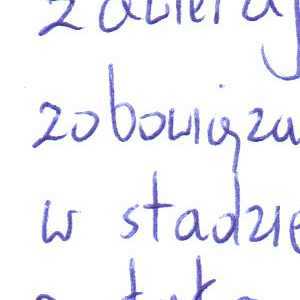 zawieraj
zobowiąza
w stadzie